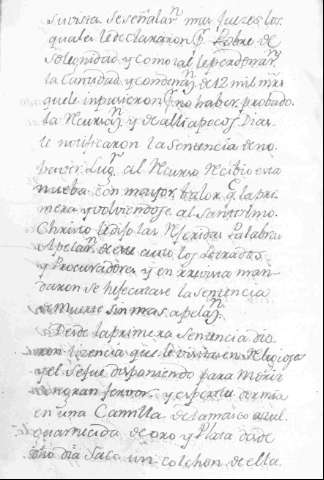 se señalarn mas jueces los
quales le declararon pr Pobre de
solegnidad y como tal le perdonarn
la Cantidad y condenazn de 12 mil mrs
que le inpusieron pr no haber probado
la Recuszn y de alli a pocos Dias
le notificaron la sentencia de no
haver Lugr el Recurso Recibio esta
nueba con maior balor q la pri
mera y volviendose al Santisimo
Christo le dijo las Referidas Palabras
Apelarn de este auto los Letrados
y Procuradores y en Revista man
daron se hejecutase la sentencia
de Muerte sin mas apelazn
Desde la primera sentencia dio
con licencia que le visitasen Religiosos
y el se fue disponiendo para Morir
con gran fervor y
en una Camilla de Damasco azul
guarnecida de oro y Plata desde
dho dia Saco un colchon de ella